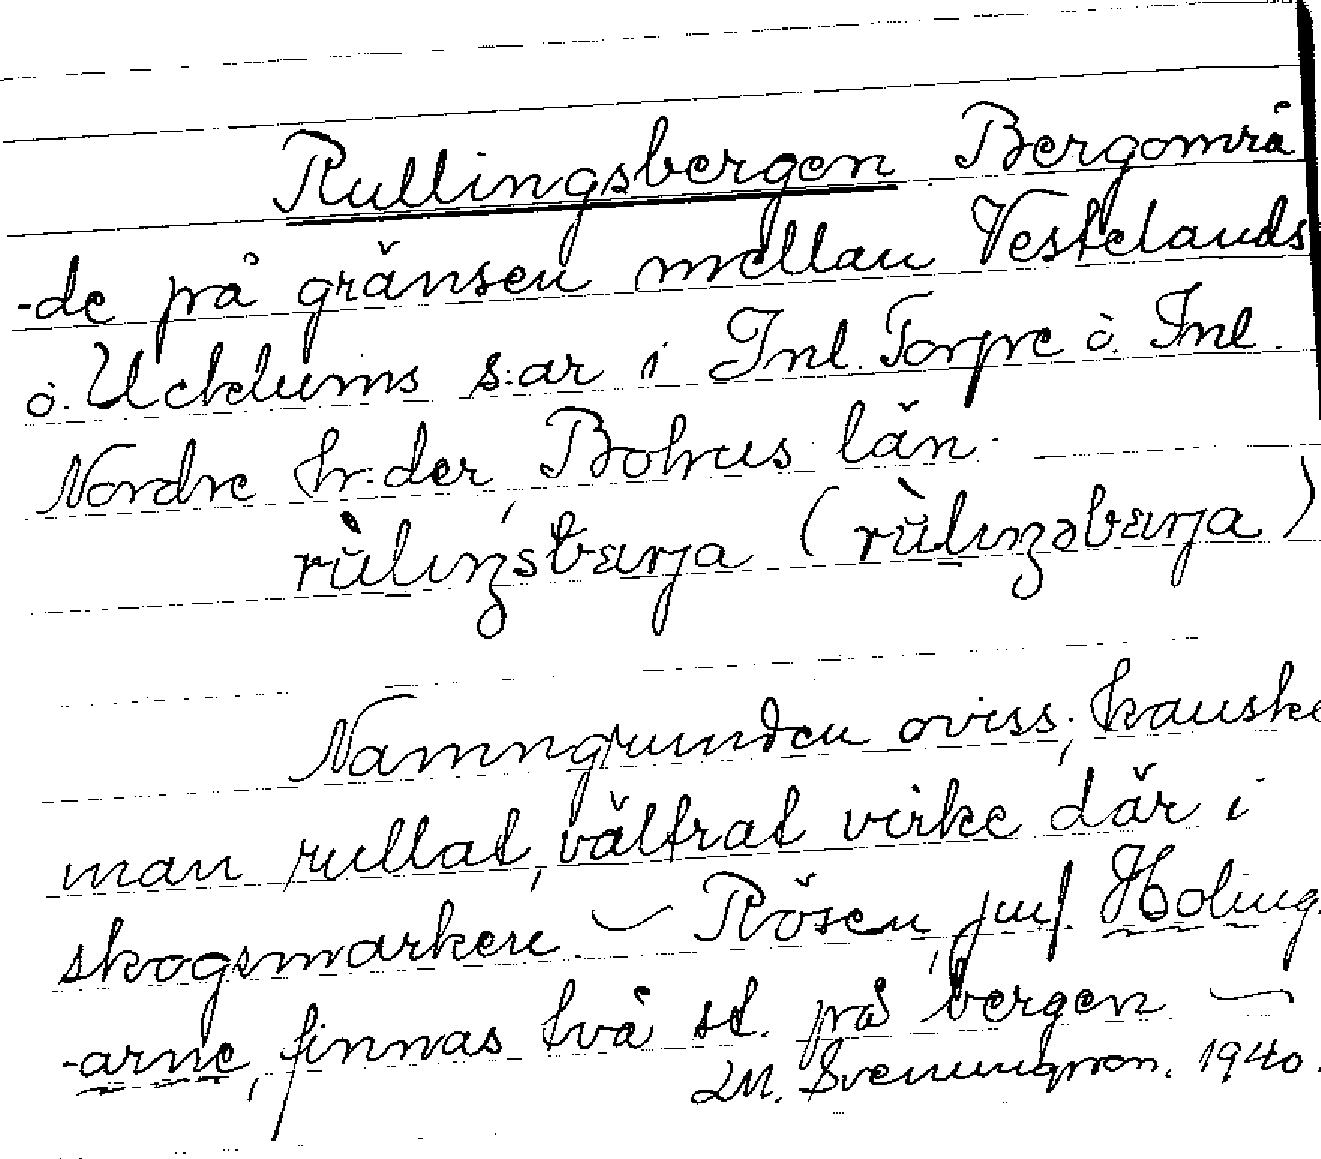 Rullingsbergen Bergområ
-de på gränsen mellan Vestelands
o. Ucklums s:ar i Inl. Torpe o. Inl.
Nordre hr:der, Bohus län.
Namngrunden oviss, kanske
man rullat, vältrat virke där i
skogsmarken – Rösen, jmf. Holing
-arne, finnas två st. på bergen –
1940.